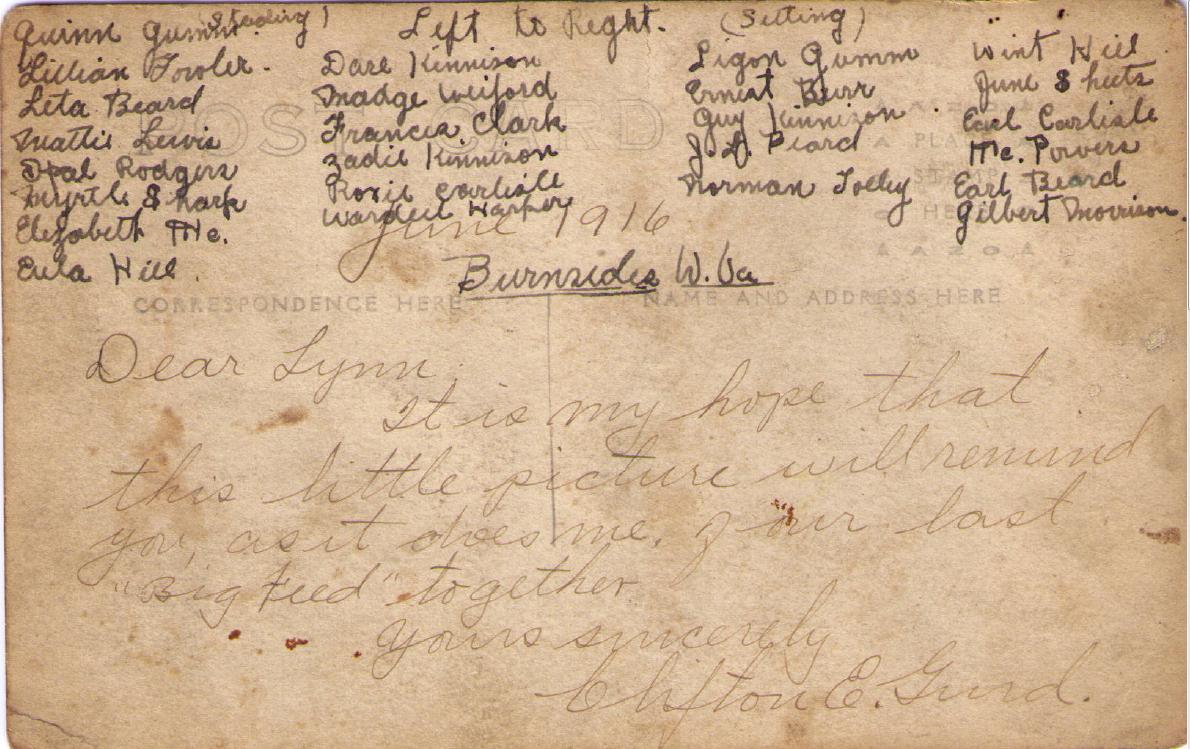 (Standing) Left to Right. (Sitting)
Quinn Gumm
Lillian Fowler.
Leta Beard
Mattie Lewis
Opal Rodgers
Myrtle Sharp
Elizabeth Mc.
Eula Hill
Dare Kinnison
Madge Weiford
Frances Clark
Zadie Kinnison
Roxie Carlisle
Wardell Harper
Ligon Gumm
Ernest Burr
Guy Kinnizon
J. D. Beard
Norman Tolley
Wint Hill
June Sheets
Earl Carlisle
Mc. Powers
Earl Beard
Gilbert Morrison.
POST CARD
PLACE
STAMP
HERE
June 1916
Burnsides W. Va
CORRESPONDENCE HERE
NAME AND ADDRESS HERE
Dear Lynn,
It is my hope that
this little picture will remind
you, as it does me, of our last
"Big Feed" together.
Yours sincerely
Clifton E. Gurd.